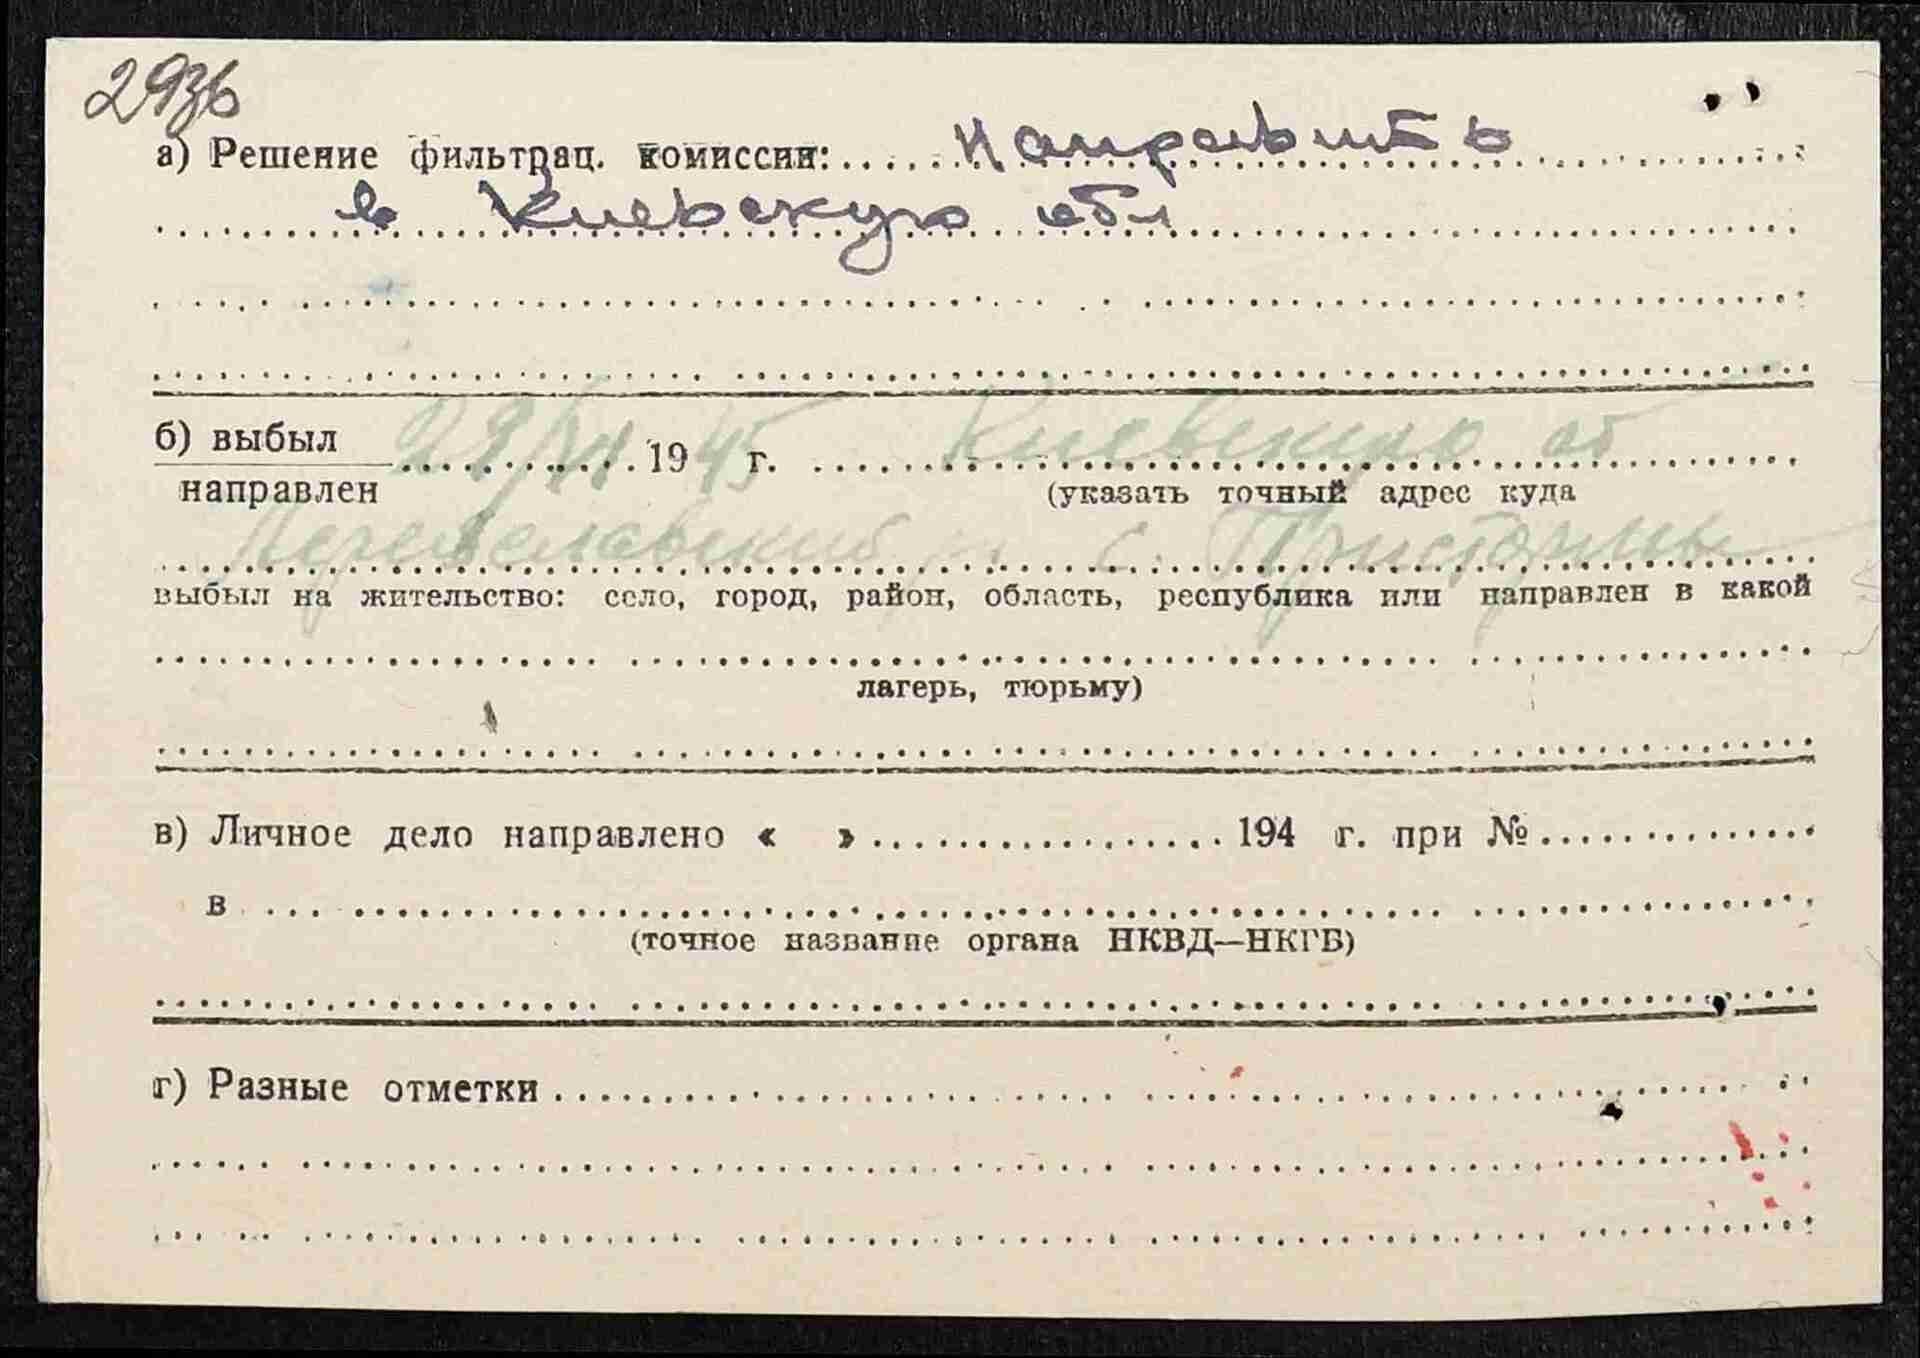 293б
а) Решение фильтрац. комиссии: направить
в Киевскую обл
б) выбыл 29/VI 1945 г. Киевскую об
направлен (указать точный адрес куда
Переяславский р с. Пристромы
выбыл на жительство: село, город, район, область, республика или направлен в какой
лагерь, тюрьму)
в) Личное дело направлено « » 194 г. при №
в
(точное название органа НКВД—НКГБ)
г) Разные отметки